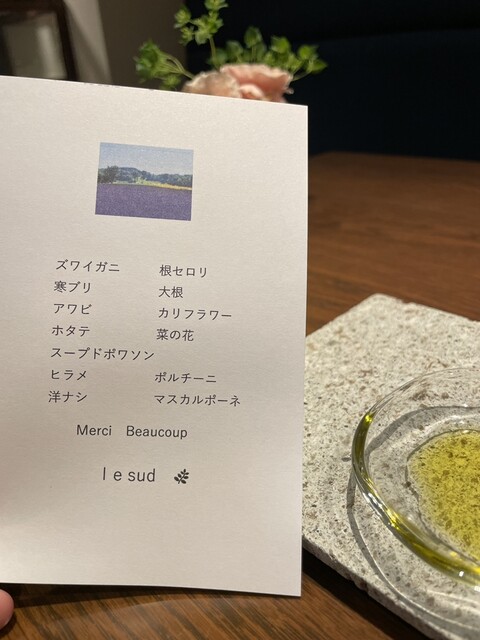 ズワイガニ 根セロリ
寒ブリ 大根
アワビ カリフラワー
ホタテ 菜の花
スープドポワソン
ヒラメ ポルチーニ
洋ナシ マスカルポーネ
Merci Beaucoup
le sud